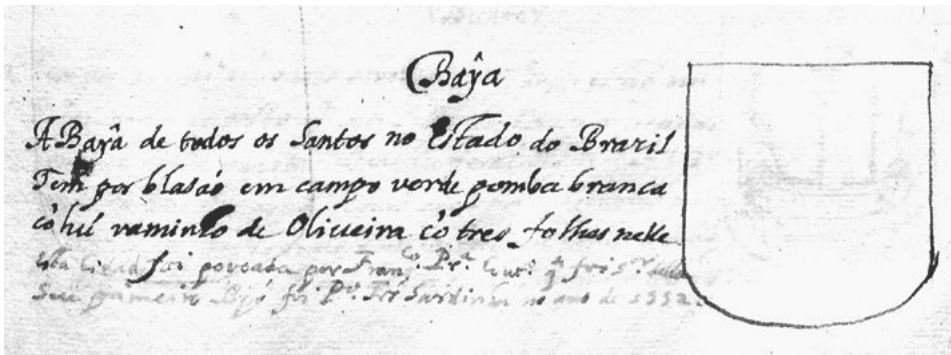 Baŷa
A Baŷa de todos os Santos no Estado do Brazil
Tem por blasaõ em campo verde pomba branca
cõ hũ raminho de Oliueira cõ tres folhas nelle
foi pouoada por Fran.co Pr.a
Seu primeiro Bpõ foi P.o Frz Sardinha no ano de 1552.